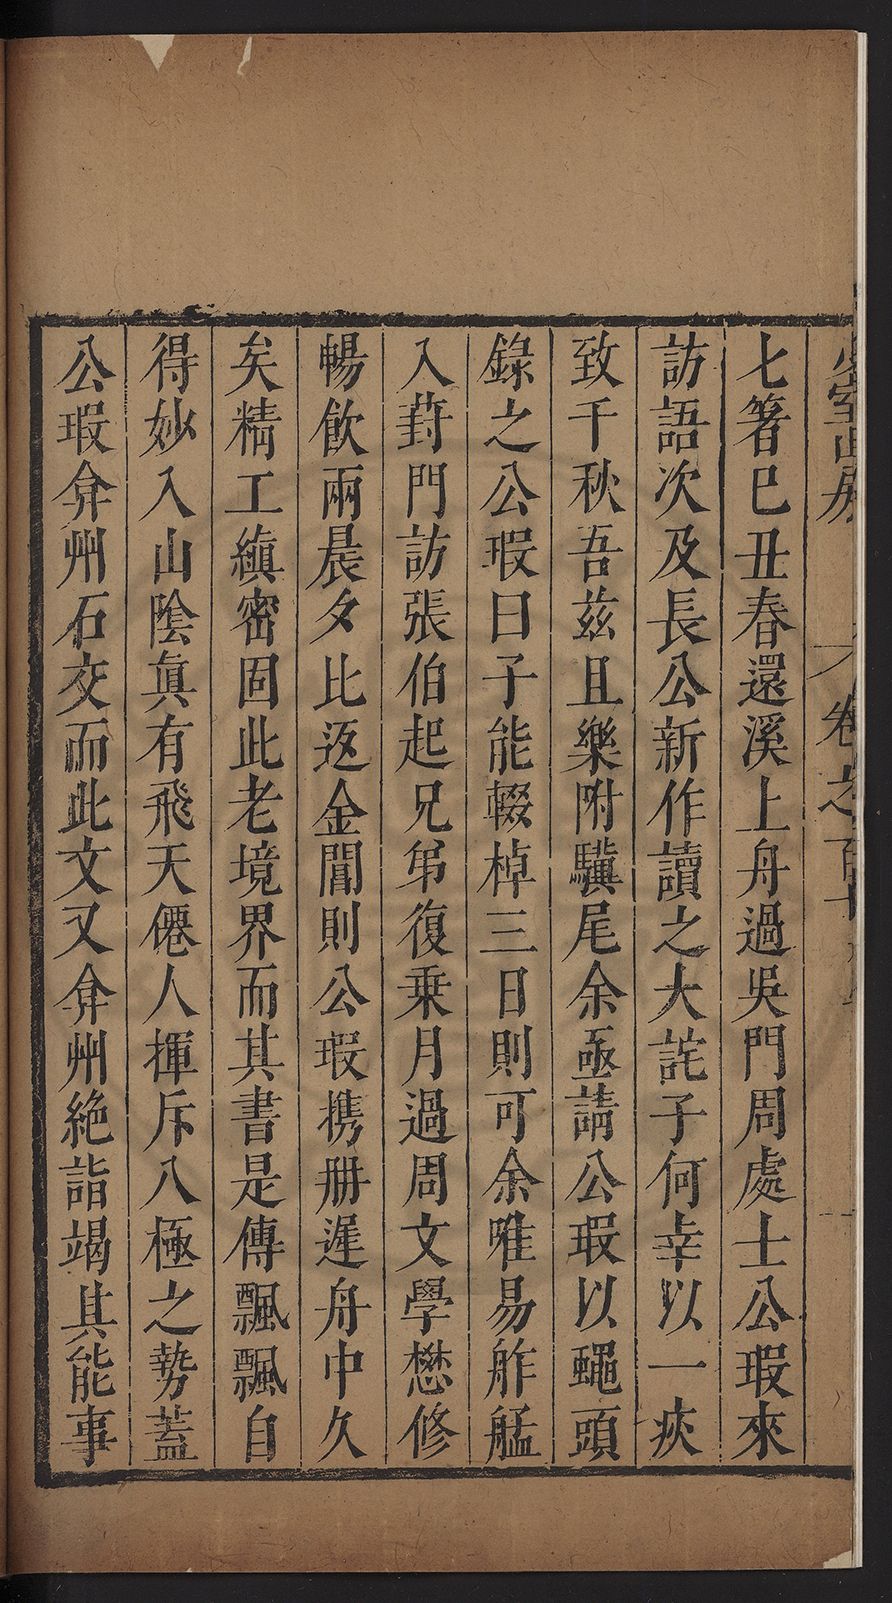 七箸巳丑春還溪上舟過吳門周處士公瑕來
訪語次及長公新作讀之大詫子何幸以一疢
致千秋吾兹且樂附驥尾余亟請公瑕以蠅頭
錄之公瑕曰子能輟棹三日則可余唯易舴艋
入葑門訪張伯起兄弟復乘月過周文學懋修
暢飲兩晨夕比返金閶則公瑕携册遲舟中久
矣精工縝密固此老境界而其書是傳飄飄自
得妙入山陰眞有飛天僊人揮斥八極之勢蓋
公瑕弇州石交而此文又弇州絶詣竭其能事